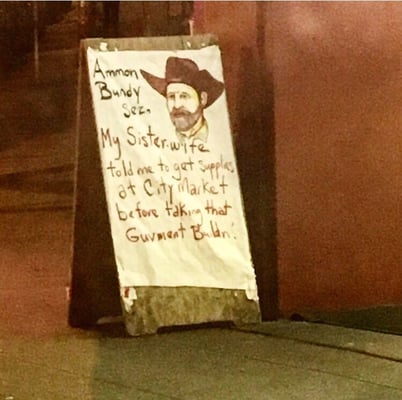 Ammon
Bundy
Sez.
My Sister-wife
told me to get supplies
at City Market
before taking that
Guvment Buldn'!